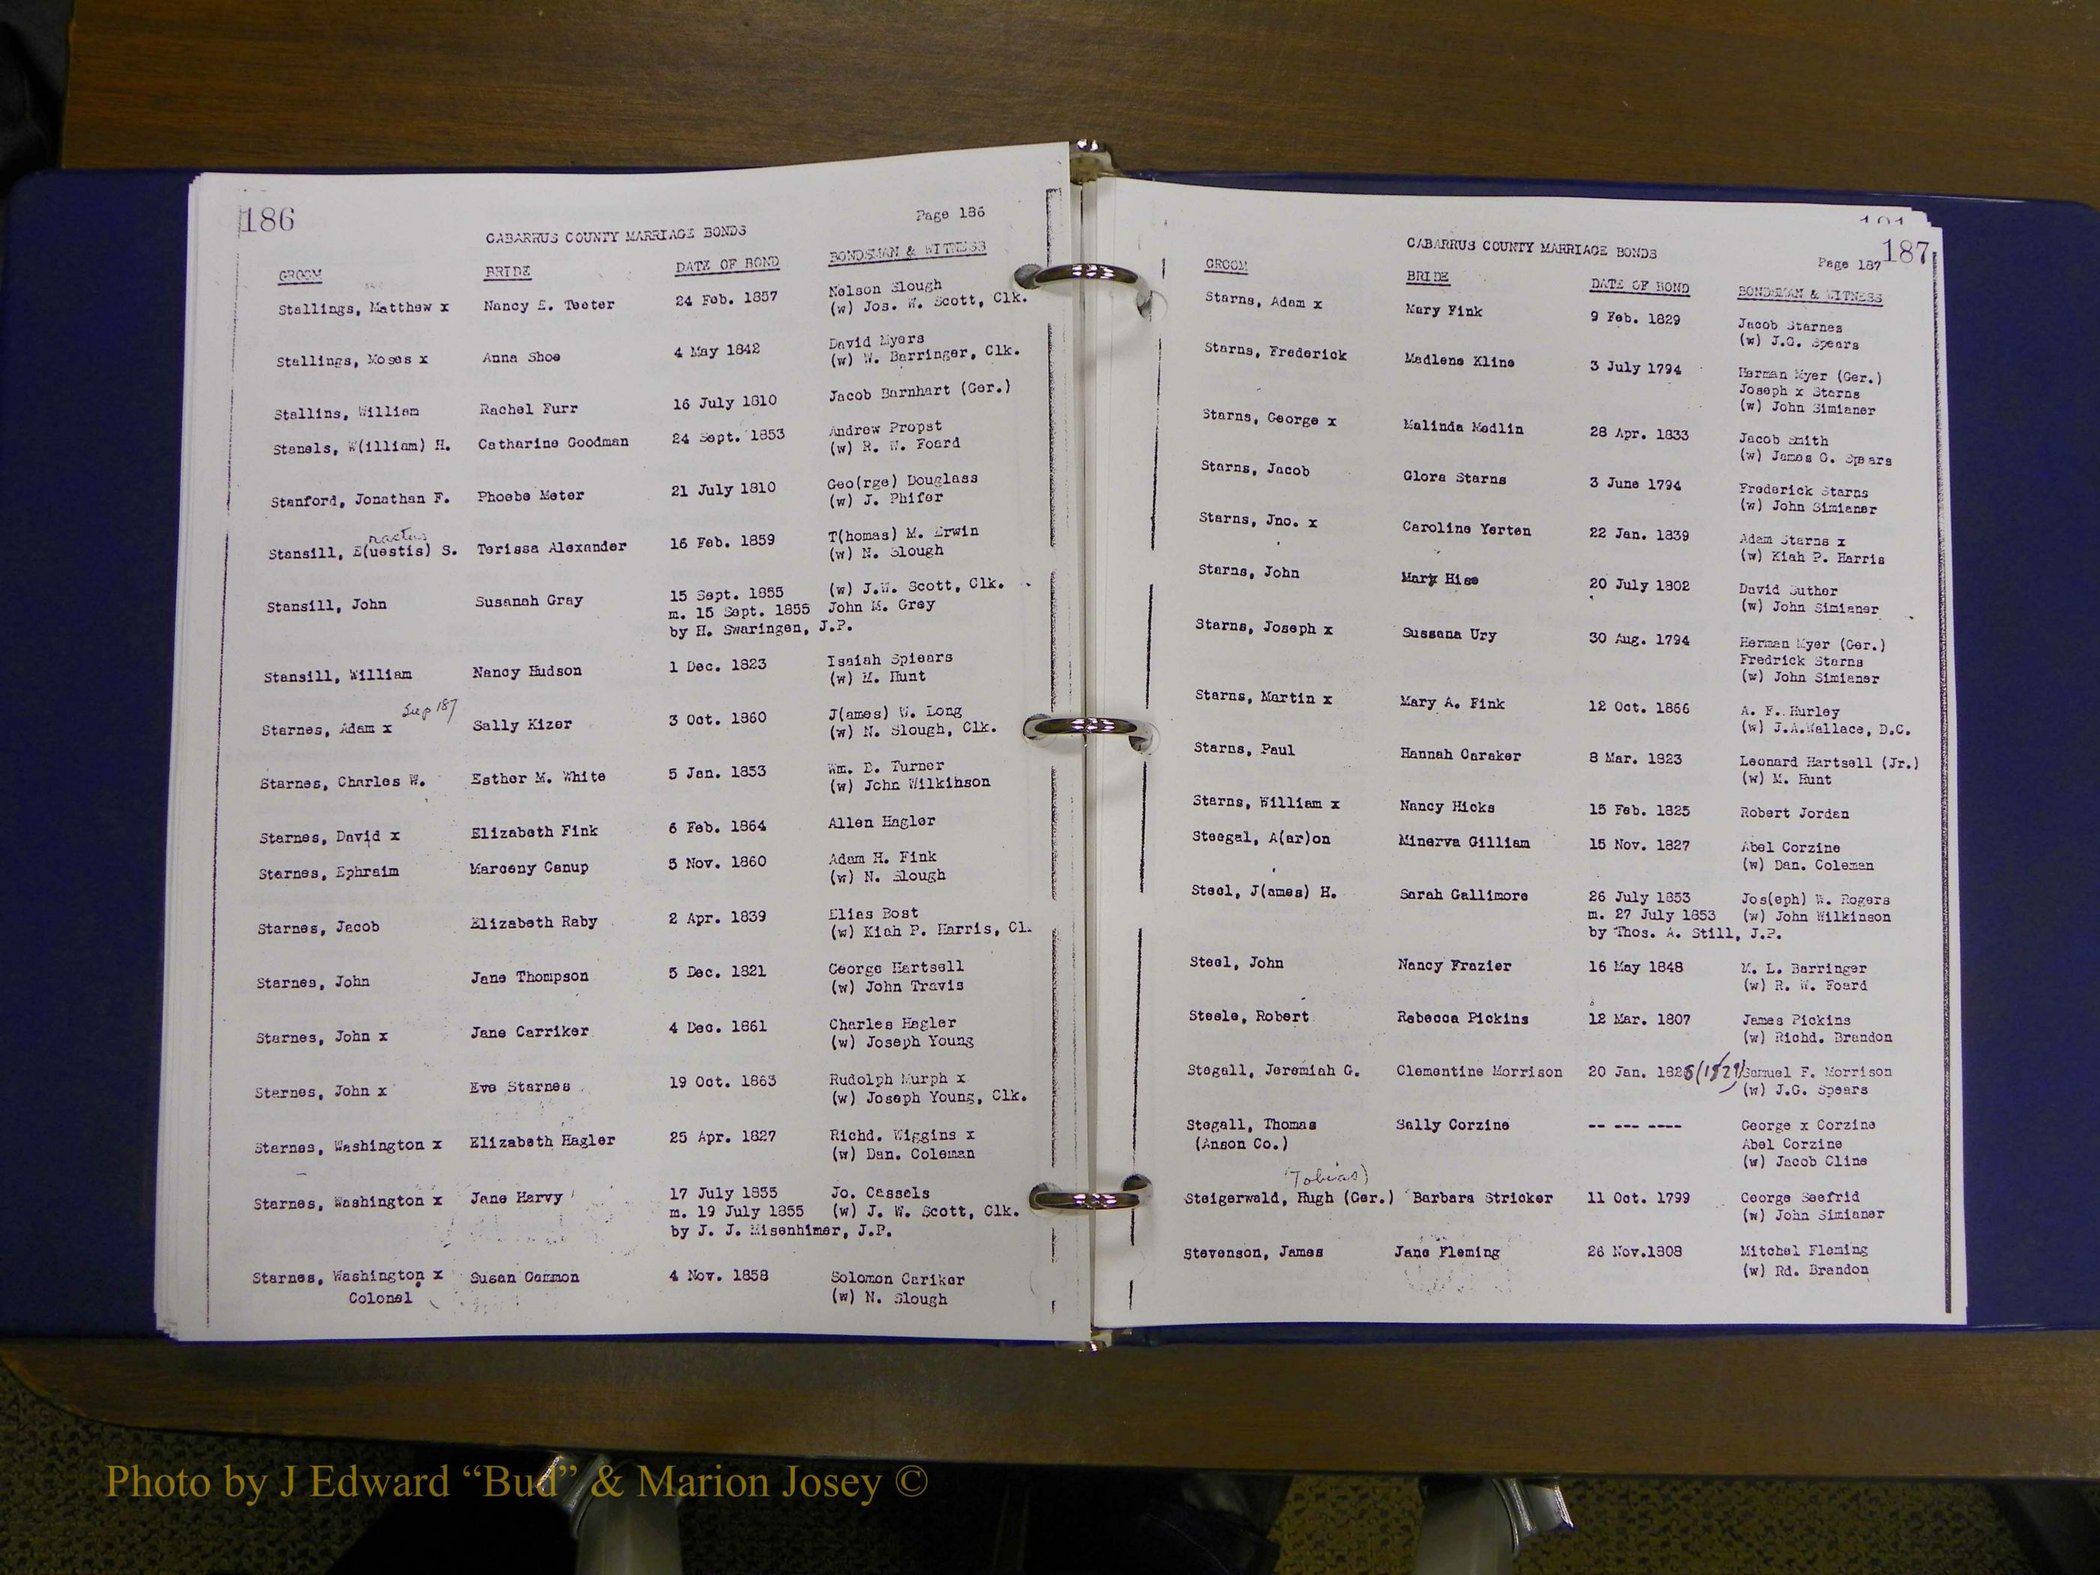 186
Page 186
CABARRUS COUNTY MARRIAGE BONDS
GROOM BRIDE DATE OF BOND BONDSMAN & WITNESS
Stallings, Matthew x Nancy E. Teeter 24 Feb. 1857 Nelson Slough
(w) Jos. W. Scott, Clk.
Stallings, Moses x Anna Shoe 4 May 1842 David Myers
(w) W. Barringer, Clk.
Stallins, William Rachel Furr 16 July 1810 Jacob Barnhart (Ger.)
Stanels, W(illiam) H. Catharine Goodman 24 Sept. 1853 Andrew Propst
(w) R. W. Foard
Stanford, Jonathan F. Phoebe Meter 21 July 1810 Geo(rge) Douglass
(w) J. Phifer
Stansill, E(uestis) S. Terissa Alexander 16 Feb. 1859 T(homas) M. Erwin
(w) N. Slough
Stansill, John Susanah Gray 15 Sept. 1855 (w) J.W. Scott, Clk.
m. 15 Sept. 1855 John M. Grey
by H. Swaringen, J.P.
Stansill, William Nancy Hudson 1 Dec. 1823 Isaiah Spiears
(w) M. Hunt
See p 187
Starnes, Adam x Sally Kizer 3 Oct. 1860 J(ames) W. Long
(w) N. Slough, Clk.
Starnes, Charles W. Esther M. White 5 Jan. 1853 Wm. D. Turner
(w) John Wilkinson
Starnes, David x Elizabeth Fink 6 Feb. 1864 Allen Hagler
Starnes, Ephraim Marceny Canup 5 Nov. 1860 Adam H. Fink
(w) N. Slough
Starnes, Jacob Elizabeth Raby 2 Apr. 1839 Elias Bost
(w) Kiah P. Harris, Cl.
Starnes, John Jane Thompson 5 Dec. 1821 George Hartsell
(w) John Travis
Starnes, John x Jane Carriker 4 Dec. 1861 Charles Hagler
(w) Joseph Young
Starnes, John x Eve Starnes 19 Oct. 1863 Rudolph Murph x
(w) Joseph Young, Clk.
Starnes, Washington x Elizabeth Hagler 25 Apr. 1827 Richd. Wiggins x
(w) Dan. Coleman
Starnes, Washington x Jane Harvy 17 July 1855 Jo. Cassels
m. 19 July 1855 (w) J. W. Scott, Clk.
by J. J. Misenhimer, J.P.
Starnes, Washington x Susan Cammon 4 Nov. 1858 Solomon Cariker
Colonel (w) N. Slough
187
Page 187
CABARRUS COUNTY MARRIAGE BONDS
GROOM BRIDE DATE OF BOND BONDSMAN & WITNESS
Starns, Adam x Mary Fink 9 Feb. 1829 Jacob Starnes
(w) J.G. Spears
Starns, Frederick Madlene Kline 3 July 1794 Herman Myer (Ger.)
Joseph x Starns
(w) John Simianer
Starns, George x Malinda Medlin 28 Apr. 1833 Jacob Smith
(w) James G. Spears
Starns, Jacob Glora Starns 3 June 1794 Frederick Starns
(w) John Simianer
Starns, Jno. x Caroline Yerten 22 Jan. 1839 Adam Starns x
(w) Kiah P. Harris
Starns, John Mary Hise 20 July 1802 David Suther
(w) John Simianer
Starns, Joseph x Sussana Ury 30 Aug. 1794 Herman Myer (Ger.)
Fredrick Starns
(w) John Simianer
Starns, Martin x Mary A. Fink 12 Oct. 1866 A. F. Hurley
(w) J.A.Wallace, D.C.
Starns, Paul Hannah Caraker 8 Mar. 1823 Leonard Hartsell (Jr.)
(w) M. Hunt
Starns, William x Nancy Hicks 15 Feb. 1825 Robert Jordan
Steegal, A(ar)on Minerva Gilliam 15 Nov. 1827 Abel Corzine
(w) Dan. Coleman
Steel, J(ames) H. Sarah Gallimore 26 July 1853 Jos(eph) W. Rogers
m. 27 July 1853 (w) John Wilkinson
by Thos. A. Still, J.P.
Steel, John Nancy Frazier 16 May 1848 M. L. Barringer
(w) R. W. Foard
Steele, Robert Rebecca Pickins 12 Mar. 1807 James Pickins
(w) Richd. Brandon
Stegall, Jeremiah G. Clementine Morrison 20 Jan. 1828 (1829) Samuel F. Morrison
(w) J.G. Spears
Stegall, Thomas Sally Corzine -- --- ---- George x Corzine
(Anson Co.) Abel Corzine
(w) Jacob Cline
(Tobias)
Steigerwald, Hugh (Ger.) Barbara Stricker 11 Oct. 1799 George Seefrid
(w) John Simianer
Stevenson, James Jane Fleming 26 Nov.1808 Mitchel Fleming
(w) Rd. Brandon
Photo by J Edward “Bud” & Marion Josey ©